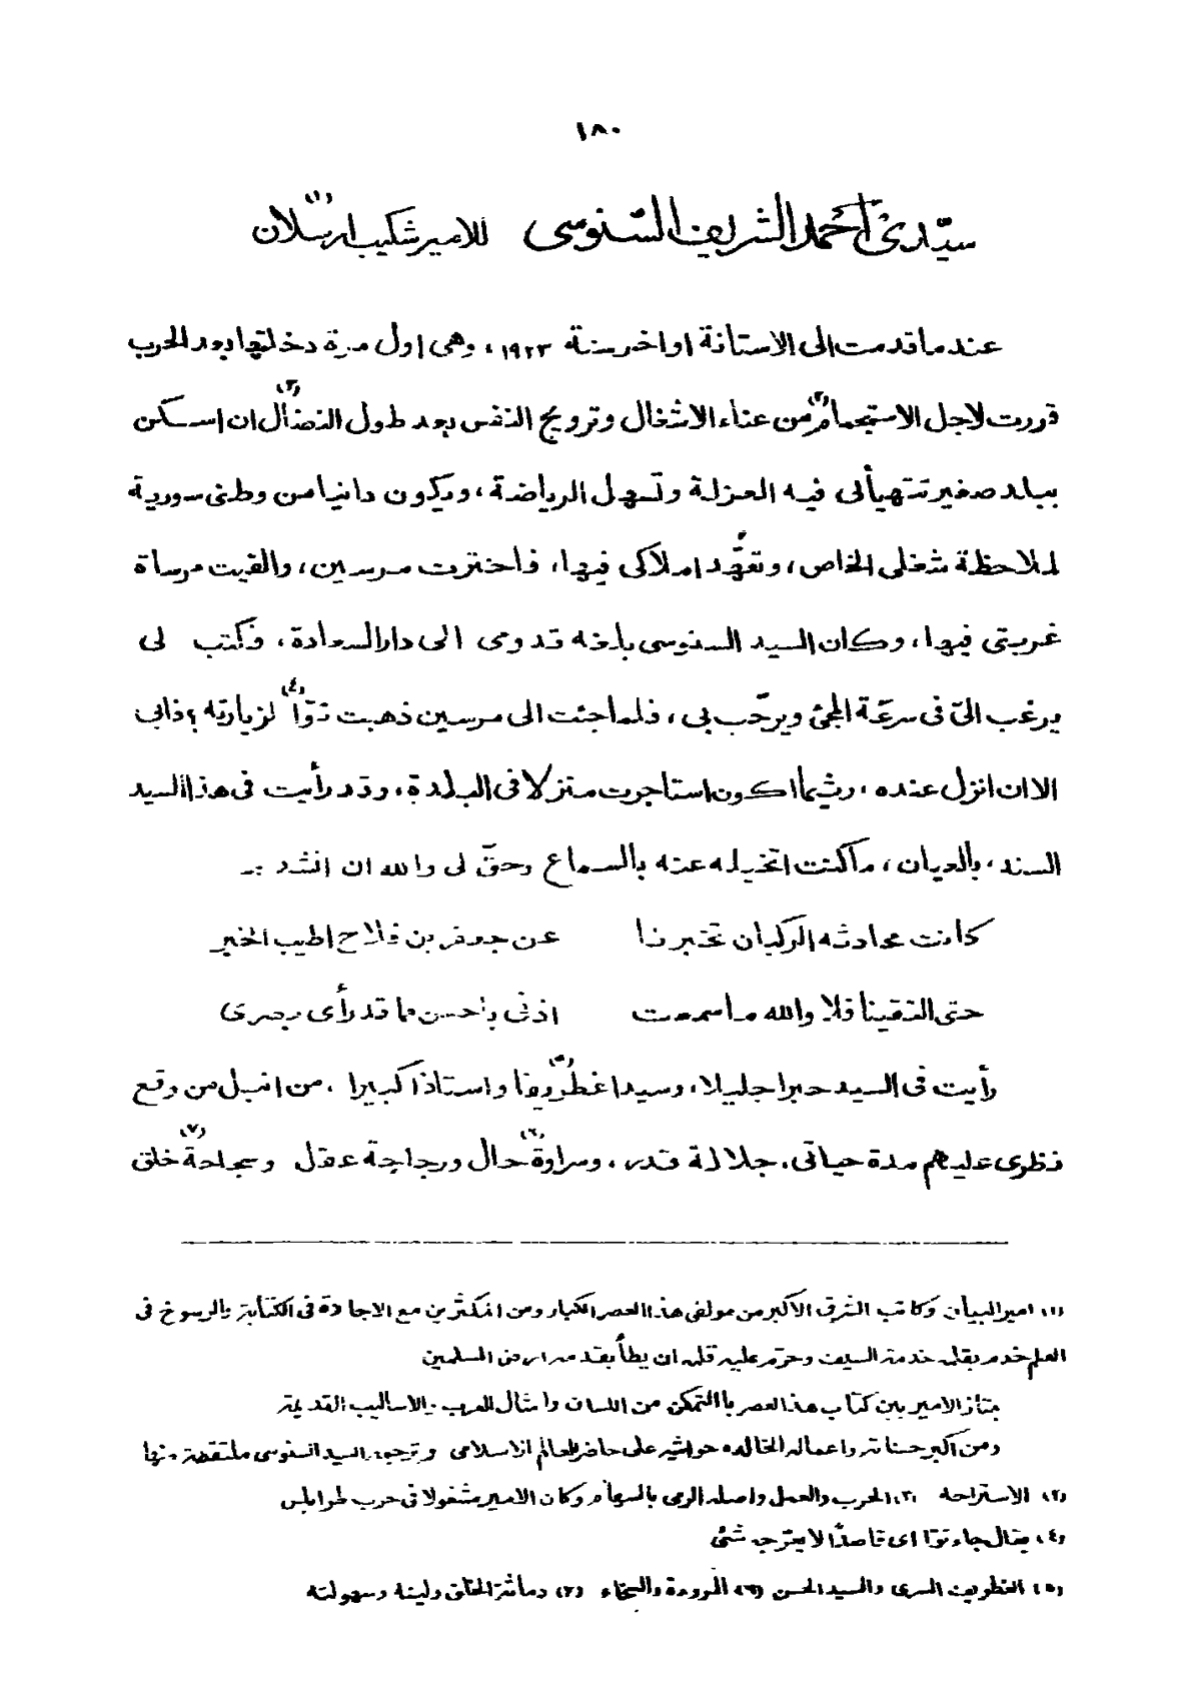 ١٨٠
سيّدى أحمد الشريف السّنوسى للامير شكيب ارسلان (١)
عندما قدمت الى الاستانة اواخر سنة ١٩٢٣، وهى اول مرة دخلتها بعد الحرب
قررت لاجل الاستجمام (٢) من عناء الاشغال وترويح النفس بعد طول النضال (٣) ان اسكن
ببلد صغير تتهيألى فيه العزلة وتسهل الرياضة، ويكون دانيا من وطنى سورية
لملاحظة شغلى الخاص، وتعهُّد املاكى فيها، فاخترت مرسين، والقيت مرساة
غربتى فيها، وكان السيد السنوسى بلغه قدومى الى دار السعادة، فكتب لى
يرغب الىّ فى سرعة المجئ ويرحّب بى، فلما جئت الى مرسين ذهبت توّا (٤) لزيارته، فابى
الا ان انزل عنده، ريثما اكون استاجرت منزلا فى البلدة، وقد رأيت فى هذا السيد
السند، بالعيان، ما كنت اتخيله عنه بالسماع وحقّ لى والله ان انشد :-
كانت محادثه الركبان تخبرنا عن جعفر بن فلاح اطيب الخبر
حتى التقينا فلا والله ما سمعت اذنى باحسن مما قد رأى بصرى
رأيت فى السيد حبرا جليلا، وسيدا غطريفا (٥) واستاذا كبيرا، من انبل من وقع
نظرى عليهم مدة حياتى، جلالة قدر، وسراوة (٦) حال ورجاجة عقل وسجاحة (٧) خلق
(١) امير البيان وكاتب الشرق الاكبر من مولفى هذا العصر الكبار ومن المكثرين مع الاجادة فى الكتابة والرسوخ فى
العلم خدم بقلمه خدمة السيف وحرّم عليه قلمه ان يطأ بقدمه ارض المسلمين
يمتاز الامير بين كتاب هذا العصر با التمكن من اللسان وامثال العرب والاساليب القديمة
ومن اكبر حسناته واعماله الخالده حواشيه على حاضر العالم الاسلامى وترجمة السيد السنوسى ملتقطة منها
(٢) الاستراحه (٣) الحرب والعمل واصله الرمى بالسهام وكان الامير مشغولا فى حرب طرابلس
(٤) يقال جاء توّا اى قاصدًا لا يعرّجه شئ
(٥) الغطريف السرى والسيد الحسن (٦) المروءة والسخاء (٧) دماثة الخلق ولينة وسهولته